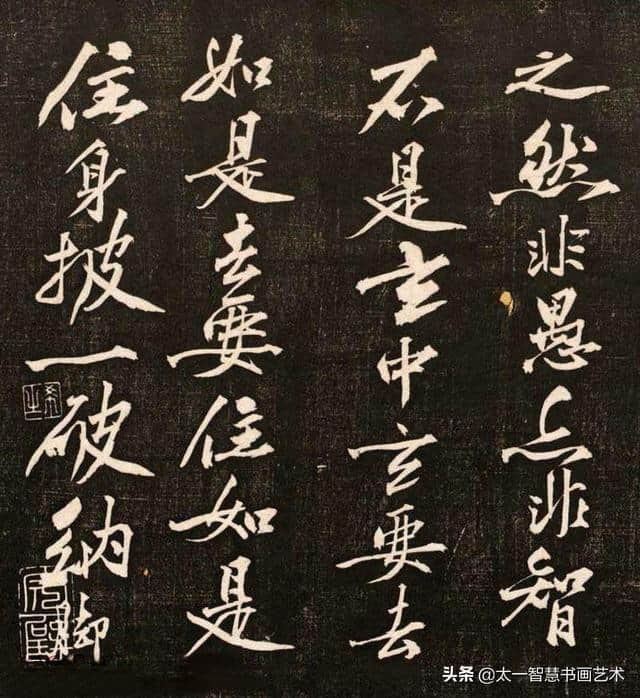 之然非愚亦非智
不是玄中玄要去
如是去要住如是
住身披一破纳脚
头条 @太一智慧书画艺术